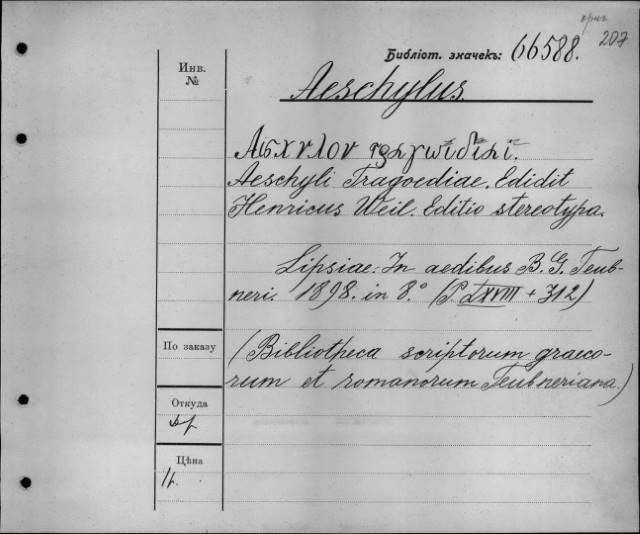 ориг
207
Библіот. значекъ: 66588.
Инв.
№
Aeschylus.
Αἰσχύλου τραγωιδίαι.
Aeschyli Tragoediae. Edidit
Henricus Weil. Editio stereotypa.
Lipsiae. In aedibus B. G. Teub-
neri. 1898. in 8.° (P. LXVIII + 312)
По заказу
(Bibliotheca scriptorum graeco-
rum et romanorum Teubneriana.)
Откуда
Цѣна